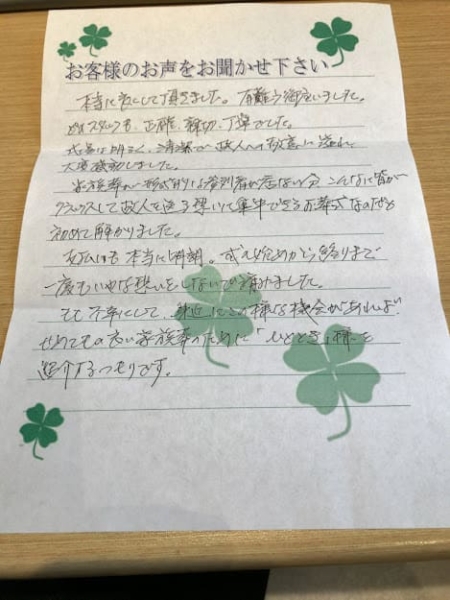 お客様のお声をお聞かせ下さい
本当に良くして頂きました。有難う御座いました。
どのスタッフも、正確、親切、丁寧でした。
式場は明るく、清潔で、故人への敬意に溢れて
大変感動しました。
家族葬の形式は参列者が居ない分、こんなに皆が
リラックスして故人を送る想いに集中できるお葬式なのだと
初めて解かりました。
支払いも本当に明朗。式の始めから終りまで
一度もいやな想いをしないで済みました。
もし不幸にして、身近にこの様な機会があれば、
せめてもの良い家族葬のために「ひととき」様を
紹介するつもりです。